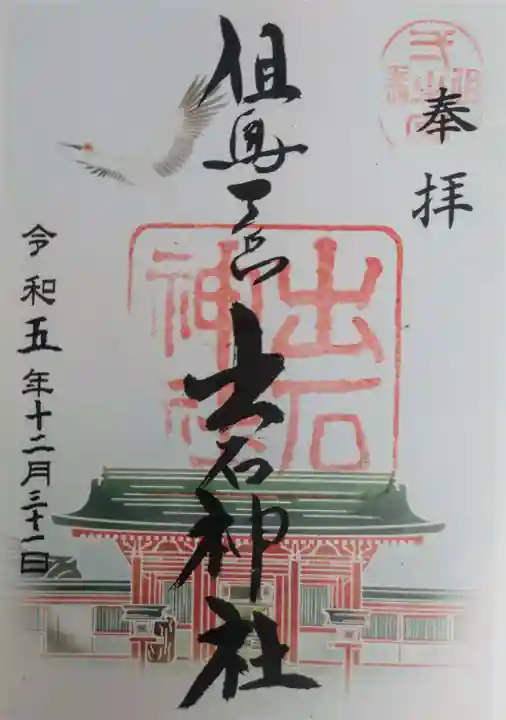 奉拝
但馬一宮 出石神社
出石神社
令和五年十二月三十一日